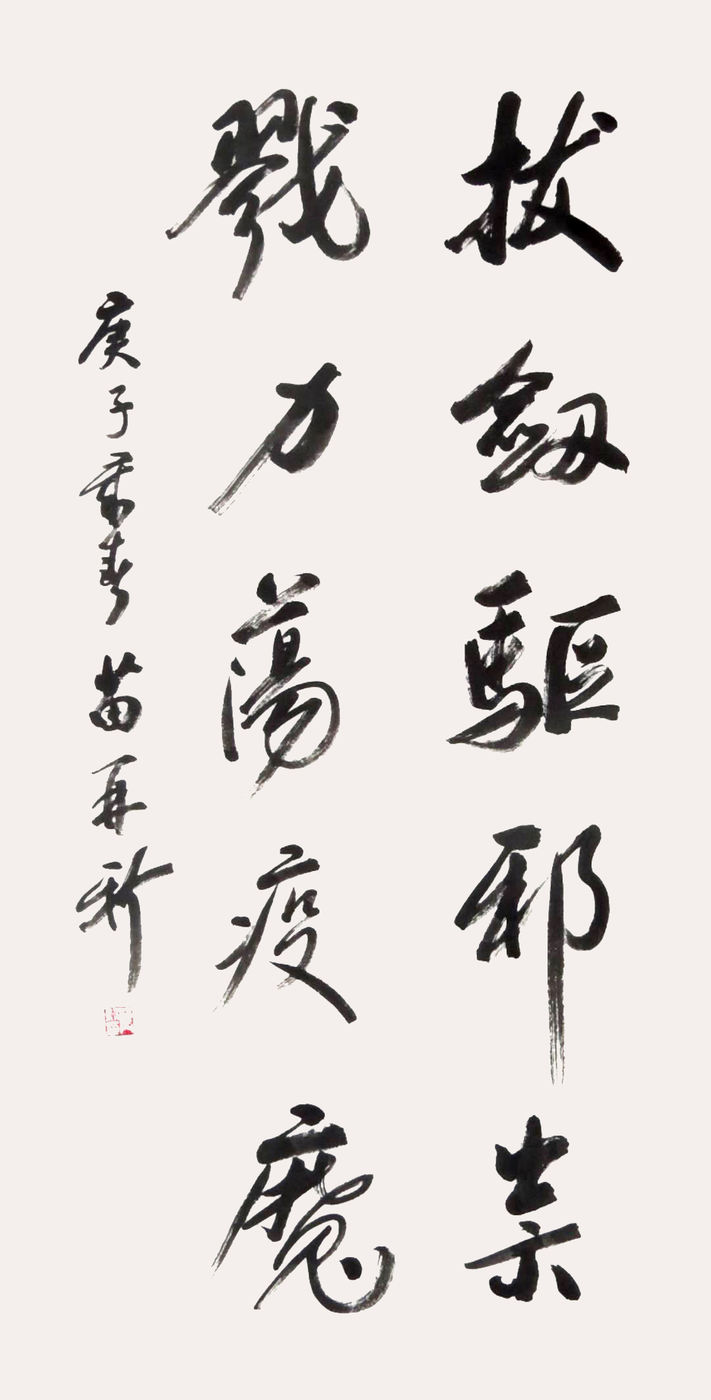 拔劔驅邪祟
戮力蕩疫魔
庚子孟春 苗再新